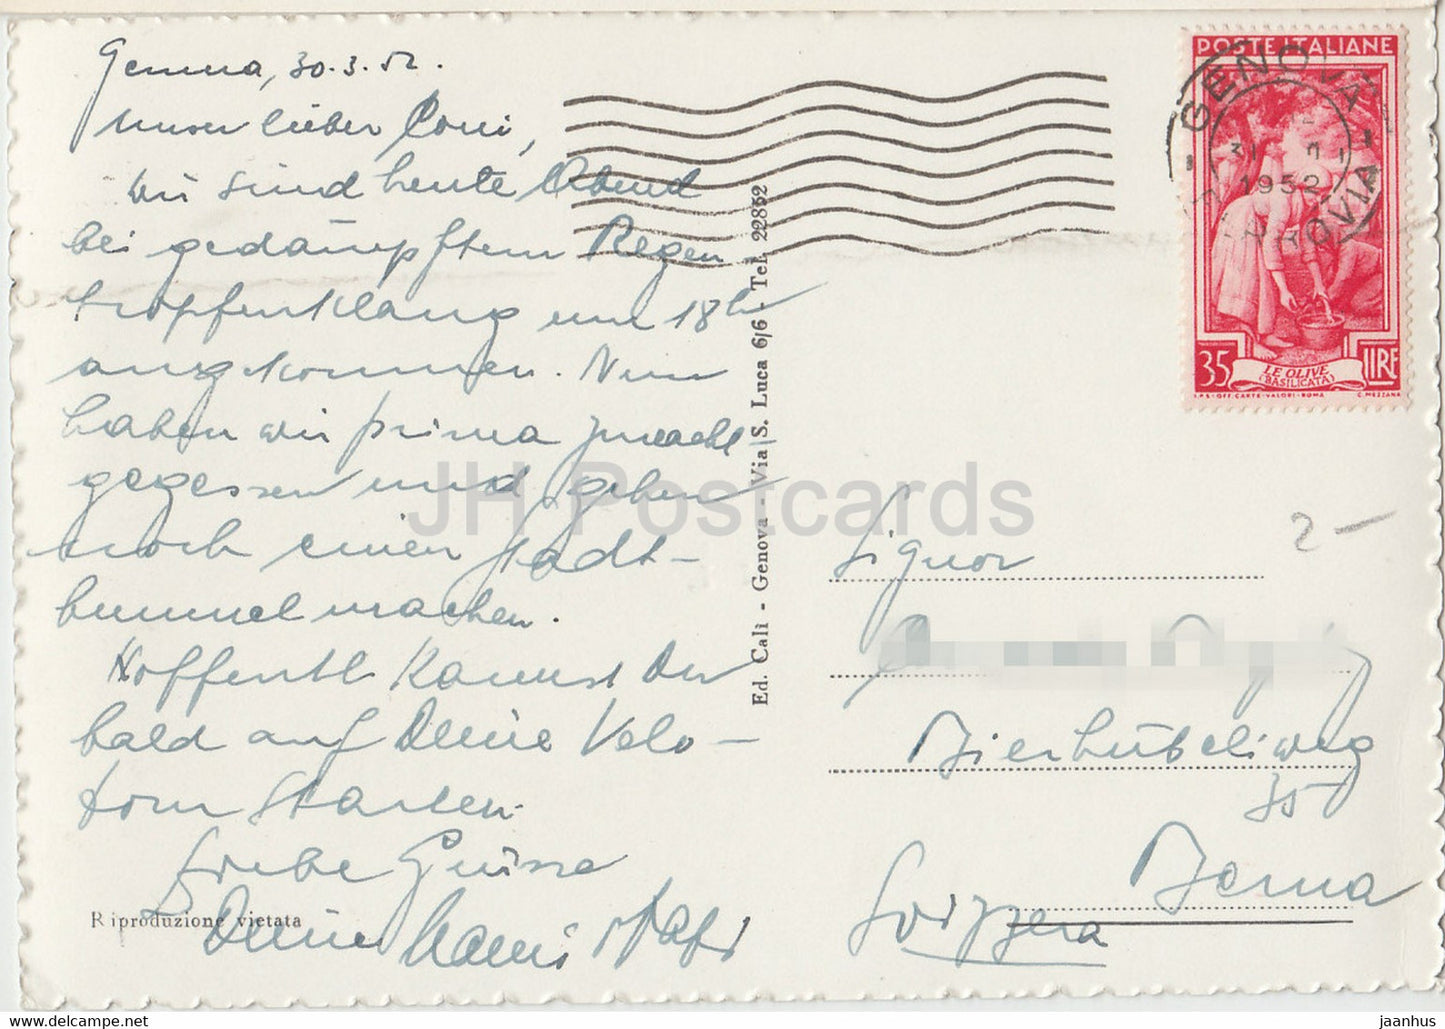 Genova, 30.3.52.
Unser lieber Coni,
Wir sind heute Abend
bei gedämpftem Regen
tropfenklang um 18h
angekommen. Nun
haben wir prima znacht
gegessen und gehen
noch einen Stadt-
bummel machen.
Hoffentl. kannst Du
bald auf Deine Velo-
tour starten.
Liebe Grüsse
Deine Mami
Riproduzione vietata
Ed. Calì - Genova - Via S. Luca 6/6 - Tel. 22852
POSTE ITALIANE
GENOVA
1952
FERROVIA
35 LIRE
LE OLIVE
(BASILICATA)
I.P.S.-OFF.CARTE-VALORI-ROMA C. MEZZANA
2-
Signor
Bierhübeliweg
35
Berna
Svizzera
JH Postcards
jaanhus
www.delcampe.net